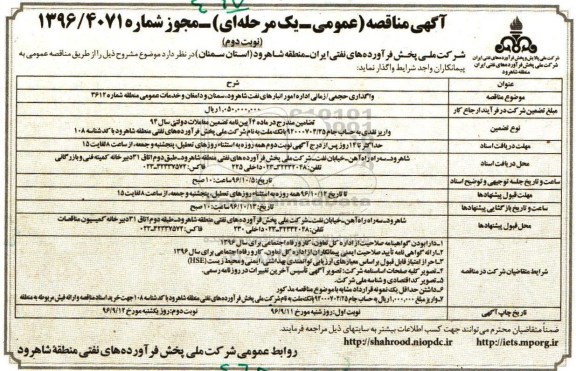 آگهی مناقصه (عمومی-یک مرحله‌ای)-مجوز شماره ۱۳۹۶/۴۰۷۱
(نوبت دوم)
شرکت ملی پخش فرآورده‌های نفتی ایران-منطقه شاهرود (استان سمنان) در نظر دارد موضوع مشروح ذیل را از طریق مناقصه عمومی به
پیمانکاران واجد شرایط واگذار نماید:
شرکت ملی پخش فرآورده های نفتی ایران
منطقه شاهرود
عنوان شرح
موضوع مناقصه واگذاری حجمی/زمانی اداره امور انبارهای نفت شاهرود، سمنان و دامغان و خدمات عمومی منطقه شماره ۳۶۱۲
مبلغ تضمین شرکت در فرآیند ارجاع کار ۱،۰۵۰،۰۰۰،۰۰۰ ریال
نوع تضمین تضامین مندرج در ماده ۴ آیین نامه تضمین معاملات دولتی سال ۹۴
واریز نقدی به حساب جام ۹۲۰۰۰۷۰۴/۲۵ بانک ملت به نام شرکت ملی پخش فرآورده‌های نفتی منطقه شاهرود با کد شناسه ۱۰۸
مهلت دریافت اسناد حداکثر تا ۱۲ روز پس از درج آگهی نوبت دوم همه روزه به استثناء روزهای تعطیل، پنجشنبه و جمعه، از ساعت ۸ لغایت ۱۵
محل دریافت اسناد شاهرود-سه راه راه آهن-خیابان نفت-شرکت ملی پخش فرآورده‌های نفتی منطقه شاهرود-طبق دوم اتاق ۳۱ دبیرخانه کمیته فنی و بازرگانی
تلفن: ۳۲۲۲۲۰۲۸-۰۲۳ داخلی ۲۲۵ فاکس: ۳۲۲۲۷۵۷۲-۰۲۳
ساعت و تاریخ جلسه توجیهی و توضیح اسناد تاریخ: ۹۶/۱۰/۵ ساعت: ۱۰ صبح
مهلت قبول پیشنهادها تا تاریخ ۹۶/۱۰/۱۲ همه روزه به استثناء روزهای تعطیل، پنجشنبه و جمعه، از ساعت ۸ لغایت ۱۵
ساعت و تاریخ بازگشایی پیشنهادها تاریخ: ۹۶/۱۰/۱۳ ساعت: ۱۰ صبح
محل قبول پیشنهادها شاهرود-سه راه راه آهن-خیابان نفت-شرکت ملی پخش فرآورده های نفتی منطقه شاهرود-طبقه دوم اتاق ۳۱ دبیرخانه کمیسیون مناقصات
شرایط متقاضیان شرکت در مناقصه
۱-دارا بودن گواهینامه صلاحیت از اداره کل تعاون، کار و رفاه اجتماعی برای سال ۱۳۹۶
۲-ارائه گواهی نامه تأیید صلاحیت ایمنی پیمانکاران از اداره کل تعاون، کار و رفاه اجتماعی برای سال ۱۳۹۶
۳-حراز امتیاز قابل قبول بر اساس معیارهای ارزیابی توانمندی بهداشتی، ایمنی و محیط زیست (HSE)
۴-تصویر کلیه صفحات اساسنامه شرکت؛ تصویر آگهی تأسیس آخرین تغییرات در روزنامه رسمی.
۵-تصویر کد اقتصادی و شناسه ملی شرکت
۶-داشتن حداقل یک نمونه قرارداد مشابه با موضوع مناقصه مذکور
۷-واریز مبلغ ۱،۰۰۰،۰۰۰ ریال به حساب جام ۹۲۰۰۰۷۰۴/۲۵ بانک ملت به نام شرکت ملی پخش فرآورده‌های نفتی منطقه شاهرود با کد شناسه ۱۰۸ جهت خرید اسناد مناقصه و ارائه فیش مربوطه به منطقه
تاریخ چاپ آگهی نوبت اول: روز شنبه مورخ ۹۶/۹/۱۱ نوبت دوم: روز یکشنبه مورخ ۹۶/۹/۱۲
ضمناً متقاضیان محترم می توانند جهت کسب اطلاعات بیشتر به سایتهای ذیل مراجعه فرمایند.
http://iets.mporg.ir http://shahrood.niopdc.ir
روابط عمومی شرکت ملی پخش فرآورده های نفتی منطقه شاهرود